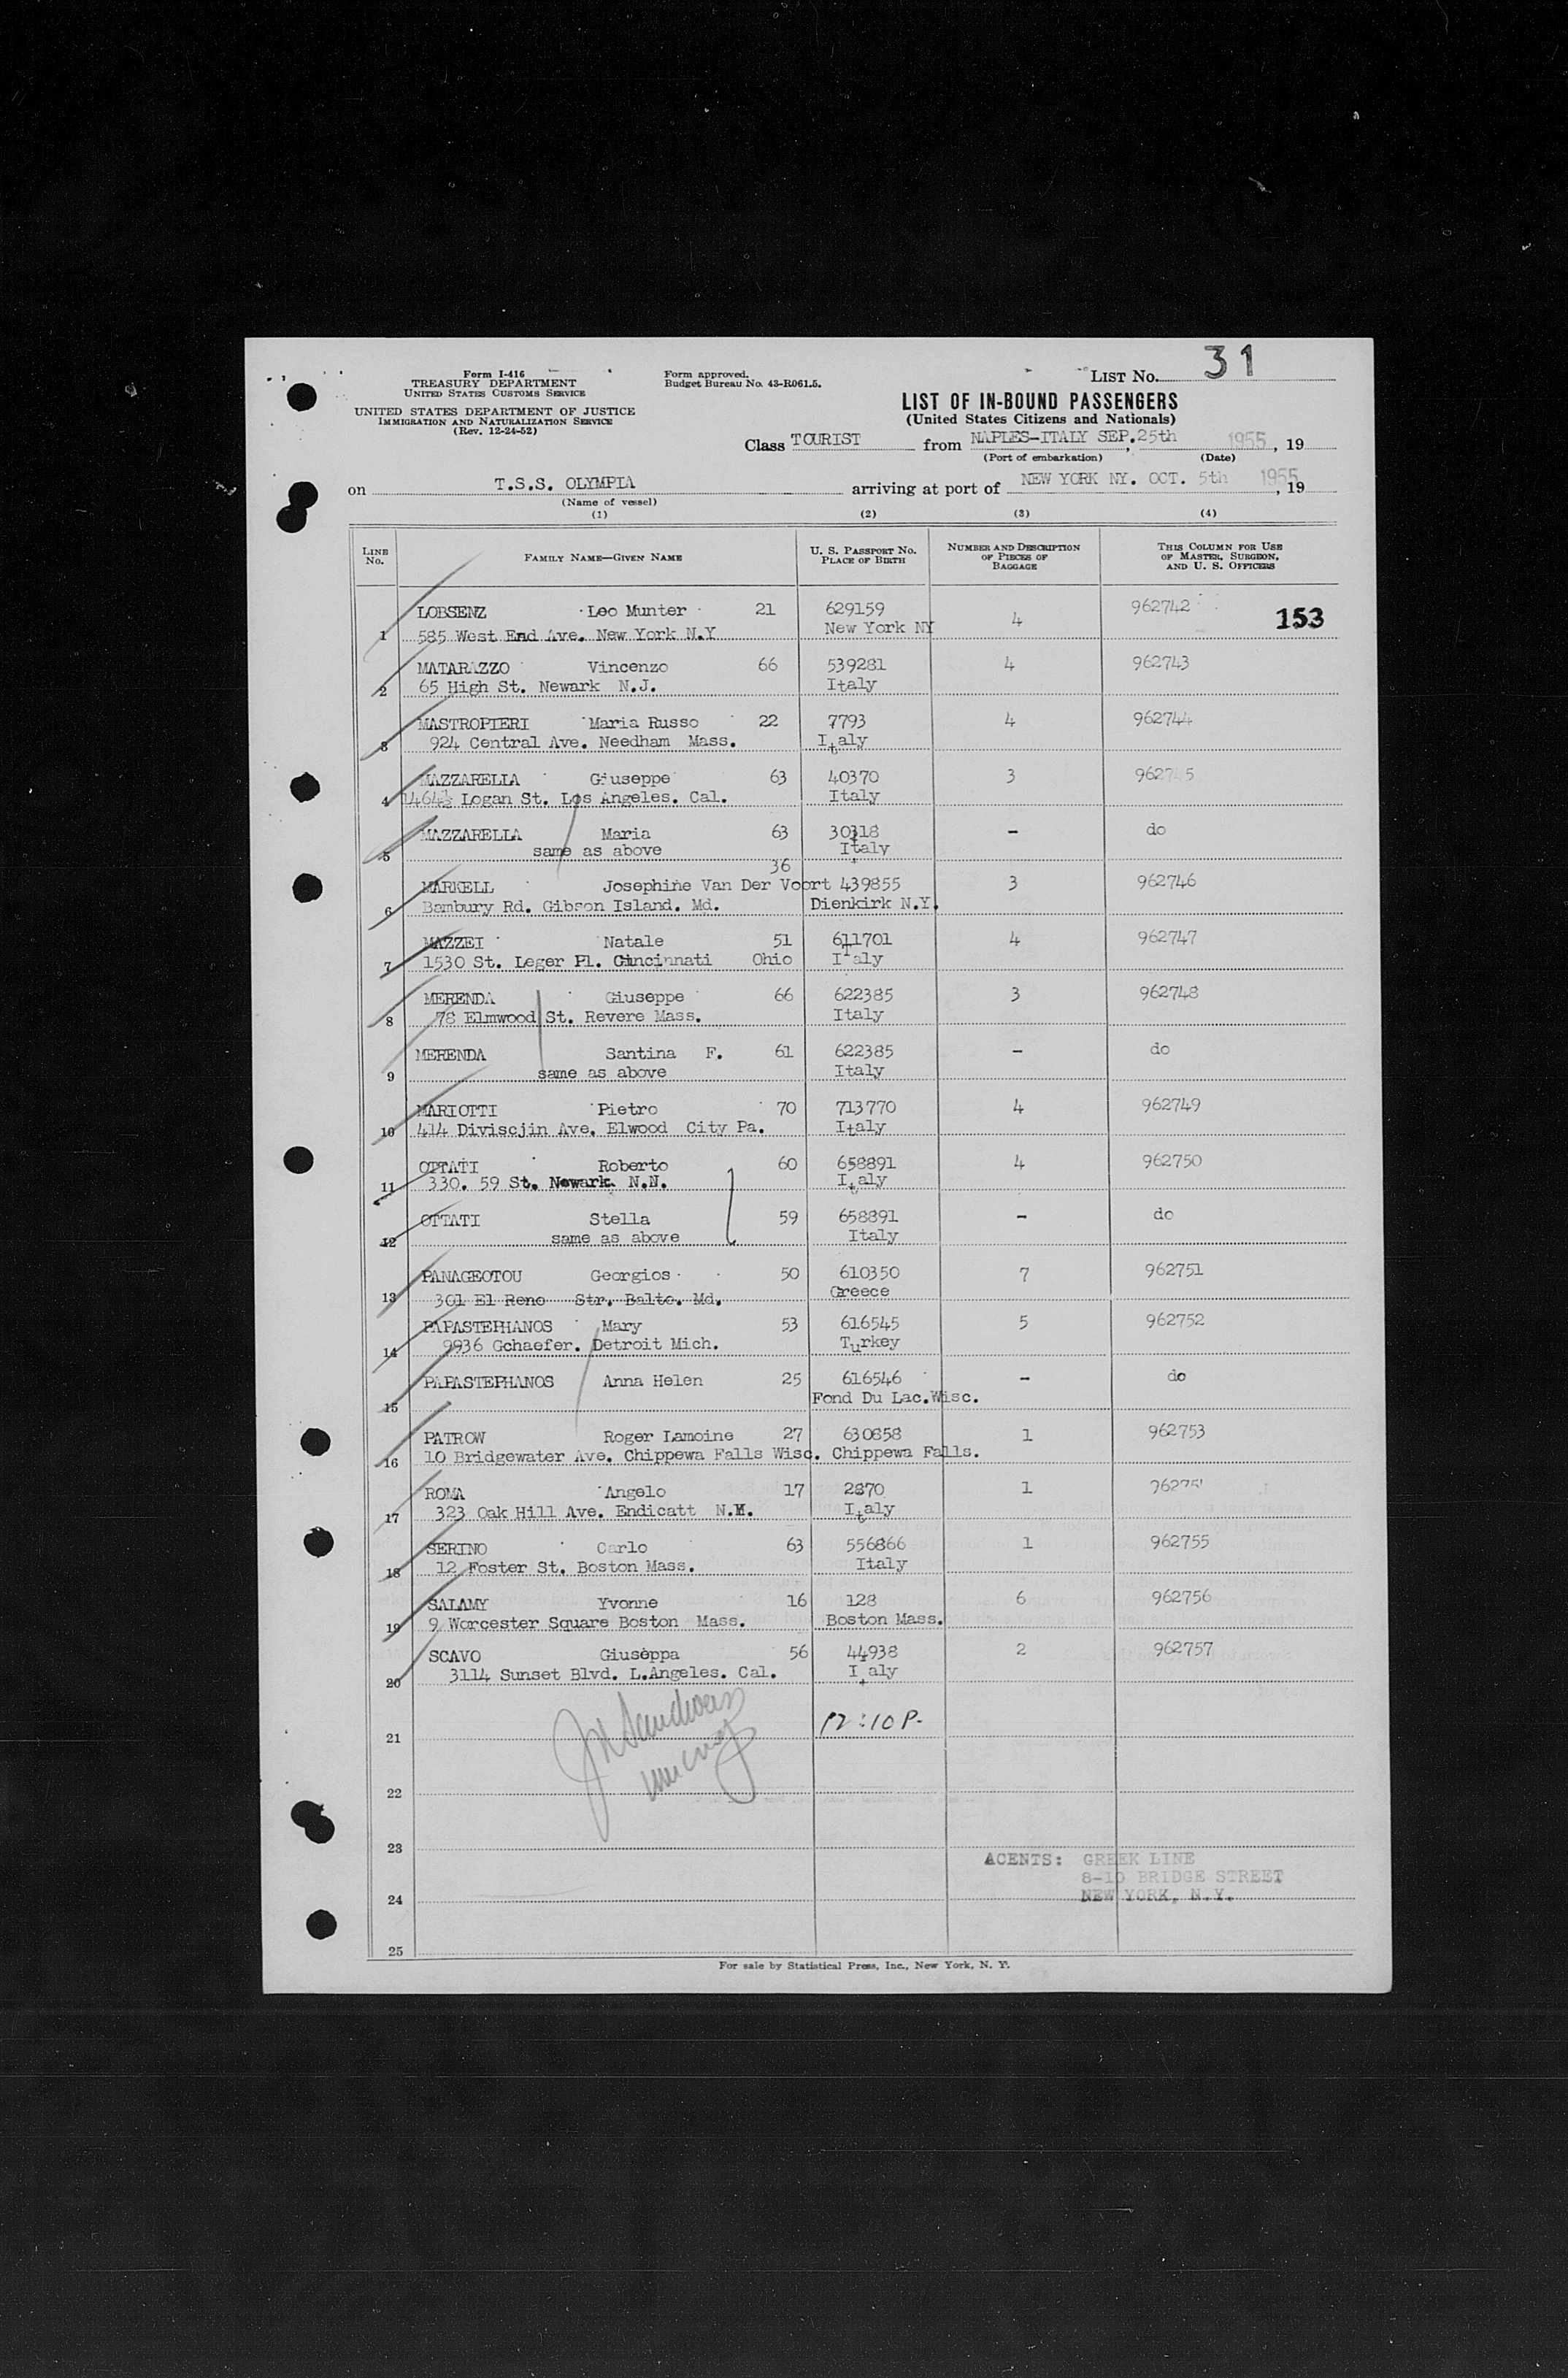 31
Form I-416
TREASURY DEPARTMENT
UNITED STATES CUSTOMS SERVICE
UNITED STATES DEPARTMENT OF JUSTICE
IMMIGRATION AND NATURALIZATION SERVICE
(Rev. 12-24-52)
Form approved.
Budget Bureau No. 43-R061.5.
LIST No.
LIST OF IN-BOUND PASSENGERS
(United States Citizens and Nationals)
Class TOURIST from NAPLES-ITALY SEP.25th 1955, 19
(Port of embarkation) (Date)
on T.S.S. OLYMPIA arriving at port of NEW YORK NY. OCT. 5th 1955, 19
(Name of vessel)
(1) (2) (3) (4)
LINE No. FAMILY NAME—GIVEN NAME U. S. PASSPORT NO. PLACE OF BIRTH NUMBER AND DESCRIPTION OF PIECES OF BAGGAGE THIS COLUMN FOR USE OF MASTER, SURGEON, AND U. S. OFFICERS
LOBSENZ Leo Munter 21 629159 4 962742 153
1 585 West End Ave. New York N.Y New York NY
MATARAZZO Vincenzo 66 539281 4 962743
2 65 High St. Newark N.J. Italy
MASTROPIERI Maria Russo 22 7793 4 962744
3 924 Central Ave. Needham Mass. Italy
MAZZARELLA Giuseppe 63 40370 3 962745
4 1464½ Logan St. Los Angeles. Cal. Italy
MAZZARELLA Maria 63 30318 - do
5 same as above Italy
36
MARKELL Josephine Van Der Voort 439855 3 962746
6 Bambury Rd. Gibson Island. Md. Dienkirk N.Y.
MAZZEI Natale 51 611701 4 962747
7 1530 St. Leger Pl. Cincinnati Ohio Italy
MERENDA Giuseppe 66 622385 3 962748
8 78 Elmwood St. Revere Mass. Italy
MERENDA Santina F. 61 622385 - do
9 same as above Italy
MARIOTTI Pietro 70 713770 4 962749
10 414 Diviscjin Ave. Elwood City Pa. Italy
OTTATI Roberto 60 658891 4 962750
11 330. 59 St. Newark. N.N. Italy
OTTATI Stella 59 658891 - do
12 same as above Italy
PANAGEOTOU Georgios 50 610350 7 962751
13 301 El Reno Str. Balto. Md. Greece
PAPASTEPHANOS Mary 53 616545 5 962752
14 9936 Gchaefer. Detroit Mich. Turkey
PAPASTEPHANOS Anna Helen 25 616546 - do
15 Fond Du Lac.Wisc.
PATROW Roger Lamoine 27 630858 1 962753
16 10 Bridgewater Ave. Chippewa Falls Wisc. Chippewa Falls.
ROMA Angelo 17 2870 1 96275
17 323 Oak Hill Ave. Endicatt N.Y. Italy
SERINO Carlo 63 556866 1 962755
18 12 Foster St. Boston Mass. Italy
SALAMY Yvonne 16 128 6 962756
19 9 Worcester Square Boston Mass. Boston Mass.
SCAVO Giuseppa 56 44938 2 962757
20 3114 Sunset Blvd. L.Angeles. Cal. Italy
21 12:10 P.
22
23
AGENTS: GREEK LINE
8-10 BRIDGE STREET
24 NEW YORK, N.Y.
25
For sale by Statistical Press, Inc., New York, N. Y.